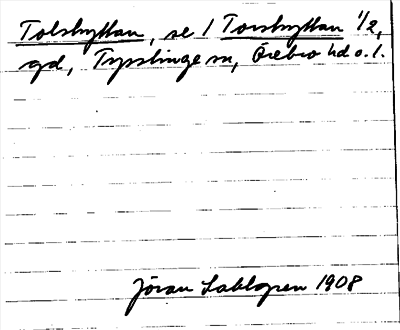 Tolshyttan, se 1 Torshyttan 1/2,
gd, Tysslinge sn, Örebro hd o. l.
Jöran Sahlgren 1908